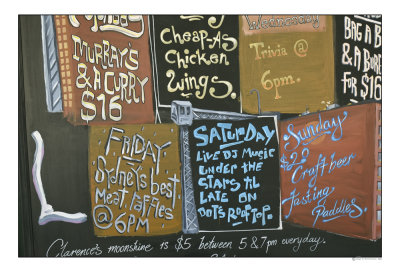 MURRAY'S
& A CURRY
$16
CHEAP-AS
CHICKEN
WINGS.
Wednesday
Trivia @
6pm.
BAG A B
& A BURG
FOR $16
FRIDAY
SYDNEY'S BEST
MEAT RAFFLES
@ 6PM
SATURDAY
LIVE DJ MUSIC
UNDER THE
STARS TIL
LATE ON
DOT'S ROOFTOP.
Sunday
$22
Craft beer
tasting
Paddles.
Clarence's moonshine is $5 between 5 & 7pm everyday.